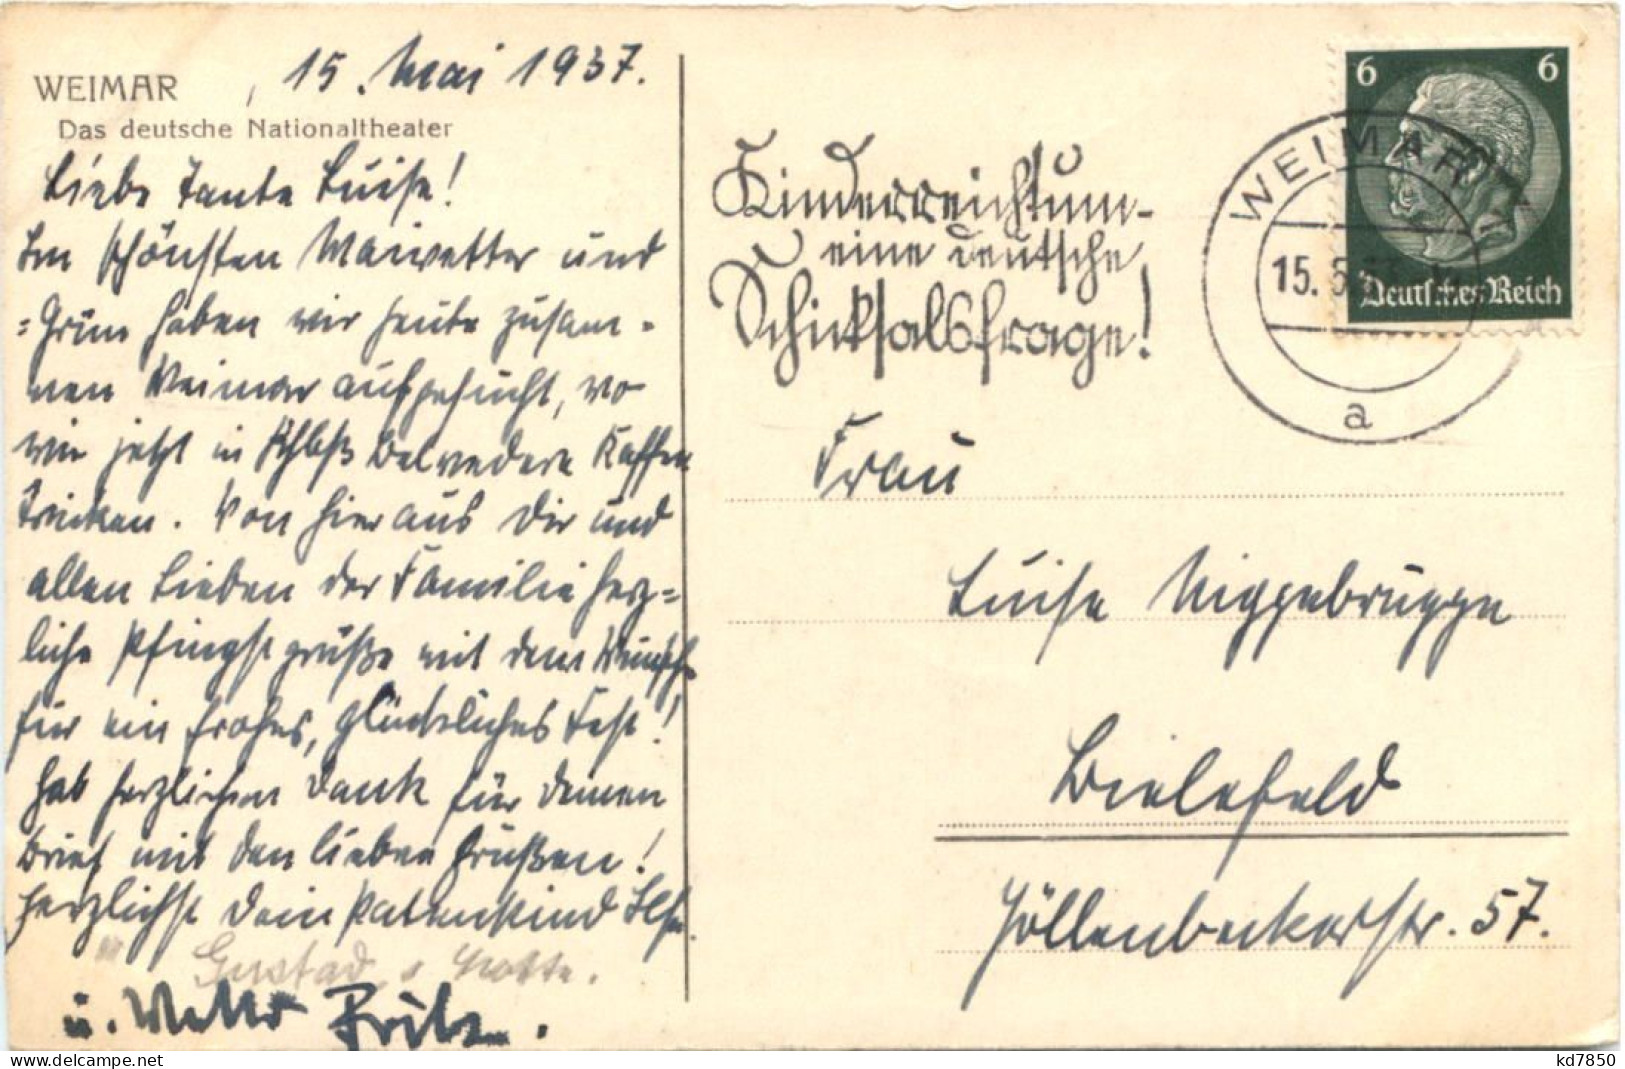 WEIMAR, 15. Mai 1937.
Das deutsche Nationaltheater
Liebe Tante Luise!
Im schönsten Maiwetter und
-Grün haben wir heute zusam-
men Weimar aufgesucht, wo
wir jetzt in Schloß Belvedere Kaffee
trinken. Von hier aus Dir und
allen Lieben der Familie herz-
liche Pfingstgrüße mit dem Wunsche
für ein frohes, glückliches Fest!
Hab herzlichen Dank für Deinen
Brief mit den lieben Grüßen!
Herzlichst Dein Patenkind Ilse.
Gustad
u. Fritz.
Kinderreichtum-
eine deutsche
Schicksalsfrage!
6 6
Deutsches Reich
WEIMAR
15. 5.
a
Frau
Luise Niggebrügge
Bielefeld
Jöllenbeckerstr. 57.
delcampe.net
kd7850